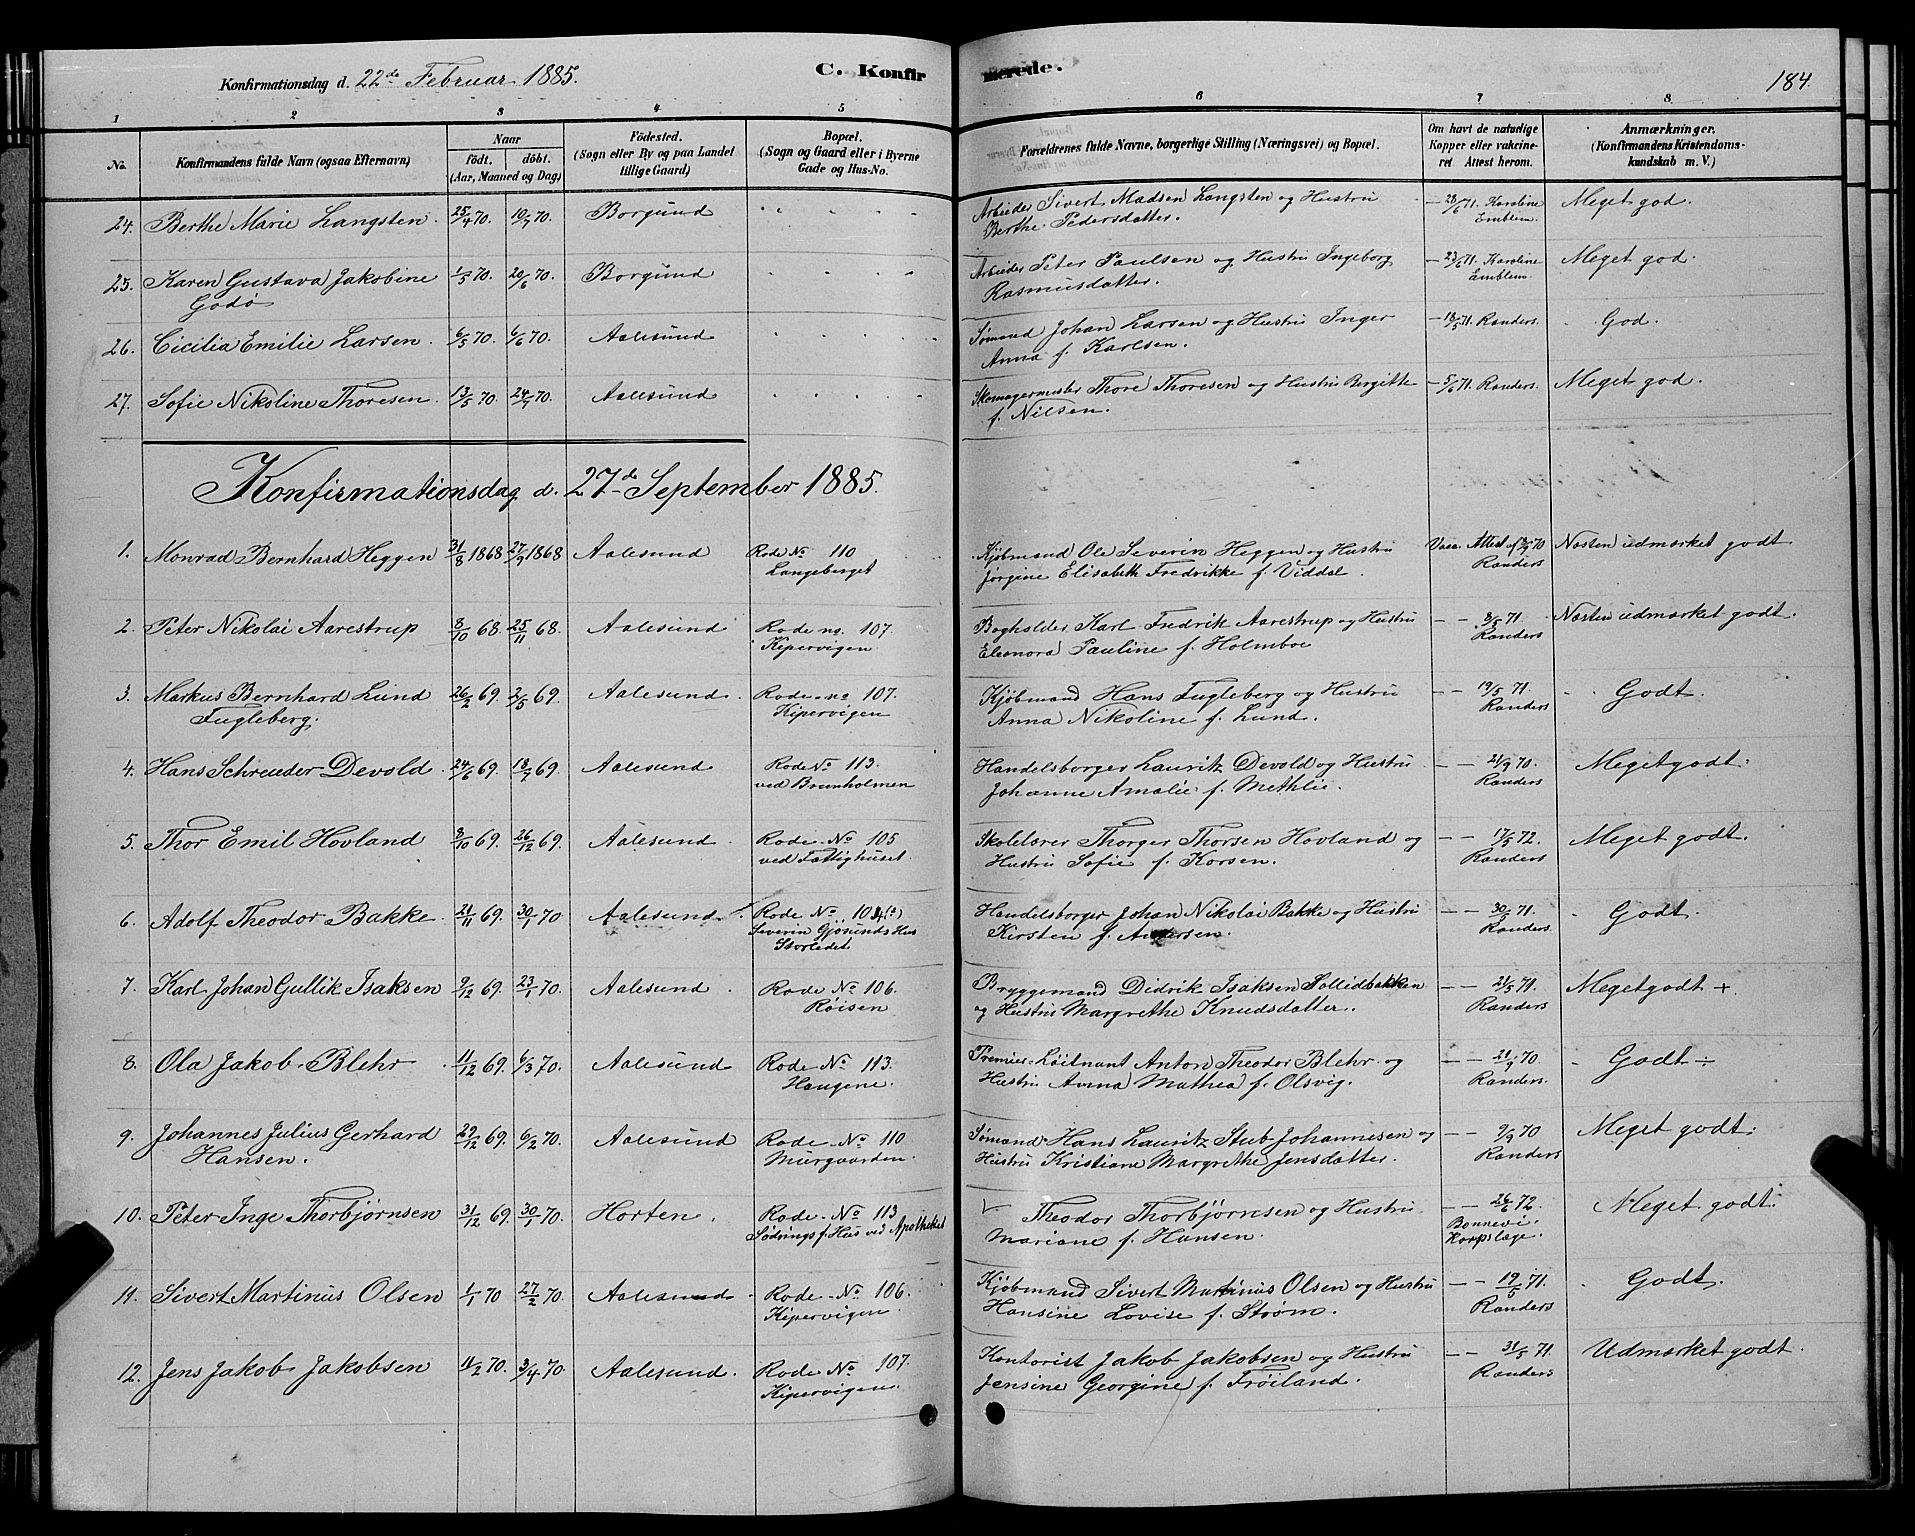 Konfirmationsdag d. 22de Februar 1885. C. Konfirmerede. 184.
1 2 3 4 5 6 7 8.
No. Konfirmandens fulde Navn (ogsaa Efternavn) Naar födt. döbt. (Aar, Maaned og Dag) Födested. (Sogn eller By og paa Landet tillige Gaard) Bopæl. (Sogn og Gaard eller i Byerne Gade og Hus-No. Forældrenes fulde Navne, borgerlige Stilling (Næringsvei) og Bopæl. Om havt de naturlige Kopper eller vakcineret. Attest herom. Anmærkninger. (Konfirmandens Kristendomskundskab m. V.)
24. Berthe Marie Langsten. 25/4 70. 10/7 70. Borgund " " " " Arbeider Sivert Madsen Langsten og Hustru — 28/6 71. Karoline Meget god.
Berthe Pedersdatter. Emblem.
25. Karen Gustava Jakobine 1/5 70. 20/6 70. Borgund " " " Arbeider Peter Paulsen og Hustru Ingeborg — 23/6 71. Karoline Meget god.
Godø Rasmusdatter. Emblem.
26. Cicilia Emilie Larsen. 6/5 70. 6/6 70. Aalesund " " " " Sømand Johan Larsen og Hustru Inger — 18/5 71. Randers. God.
Anna f. Karlsen.
27. Sofie Nikoline Thoresen. 13/5 70. 24/7 70. Aalesund " " " " Skomagermester Thore Thoresen og Hustru Birgitte — 5/6 71. Randers. Meget god.
f. Nilsen.
Konfirmationsdag d. 27de September 1885.
1. Monrad Bernhard Heggen 31/8 1868 27/9 1868 Aalesund Rode No 110 Kjøbmand Ole Severin Heggen og Hustru Vacc. Attest 70 Næsten udmærket godt
Langeberget Jørgine Elisabeth Fredrikke f. Viddal. Randers
2. Peter Nikolai Aarestrup 8/10 68. 25/11 68. Aalesund Rode no. 107. Bogholder Karl Fredrik Aarestrup og Hustru — — 8/5 71 Næsten udmærket godt.
Kipervigen Eleonora Pauline f. Holmboe Randers
3. Markus Bernhard Lund 26/2 69. 2/5 69. Aalesund. Rode no 107. Kjøbmand Hans Fugleberg og Hustru — — 19/5 71. Godt.
Fugleberg. Kipervigen Anna Nikoline f. Lund. Randers
4. Hans Schreuder Devold. 24/6 69. 18/7 69. Aalesund Rode No 113. Handelsborger Lauritz Devold og Hustru — — 21/9 70. Meget godt.
ved Brunholmen Johanne Amalie f. Methlie. Randers
5. Thor Emil Hovland 3/10 69. 26/12 69. Aalesund. Rode No 105 Skolelærer Thorger Thorsen Hovland og — — 17/5 72. Meget godt.
ved Fattighuset. Hustru Sofie f. Korsen. Randers.
6. Adolf Theodor Bakke. 21/11 69. 30/1 70 Aalesund. Rode No 104(a) Handelsborger Johan Nikolai Bakke og Hustru — — 30/5 71. Godt.
Severin Gjøsunds Hus Kirsten f. Andersen. Randers.
Storledet
7. Karl Johan Gullik Isaksen 9/12 69. 23/1 70. Aalesund. Rode No 106. Bryggemand Didrik Isaksen Sollidbakken — — 21/5 71. Meget godt +.
Røisen og Hustru Margrethe Knudsdatter. Randers
8. Ola Jakob Blehr. 11/12 69. 6/3 70. Aalesund Rode No 113. Premier-Løitnant Anton Theodor Blehr og — — 21/9 70 Godt ÷
Haugene. Hustru Anna Mathea f. Olsvig. Randers.
9. Johannes Julius Gerhard 29/12 69. 6/2 70. Aalesund Rode No 110 Sømand Hans Lauritz Stub Johannesen og — — 9/9 70 Meget godt.
Hansen. Murgaarden. Hustru Kristiane Margrethe Jensdatter. Randers
10. Peter Inge Thorbjørnsen 31/12 69. 30/1 70. Horten. Rode No 113 Theodor Thorbjørnsen og Hustru — — 26/6 72. Meget godt.
Sødrings f. Hus ved Apotheket Mariane f. Hansen. Bonnevi
Korpslæge.
11. Sivert Martinus Olsen 1/1 70 27/2 70. Aalesund Rode No 106. Kjøbmand Sivert Martinus Olsen og Hustru — — 19/5 71. Godt.
Kipervigen. Hansine Lovise f. Strøm. Randers
12. Jens Jakob Jakobsen 11/2 70. 3/4 70 Aalesund. Rode No 107. Kontorist Jakob Jakobsen og Hustru — — 31/5 71. Udmærket godt.
Kipervigen. Jensine Georgine f. Frøiland. Randers